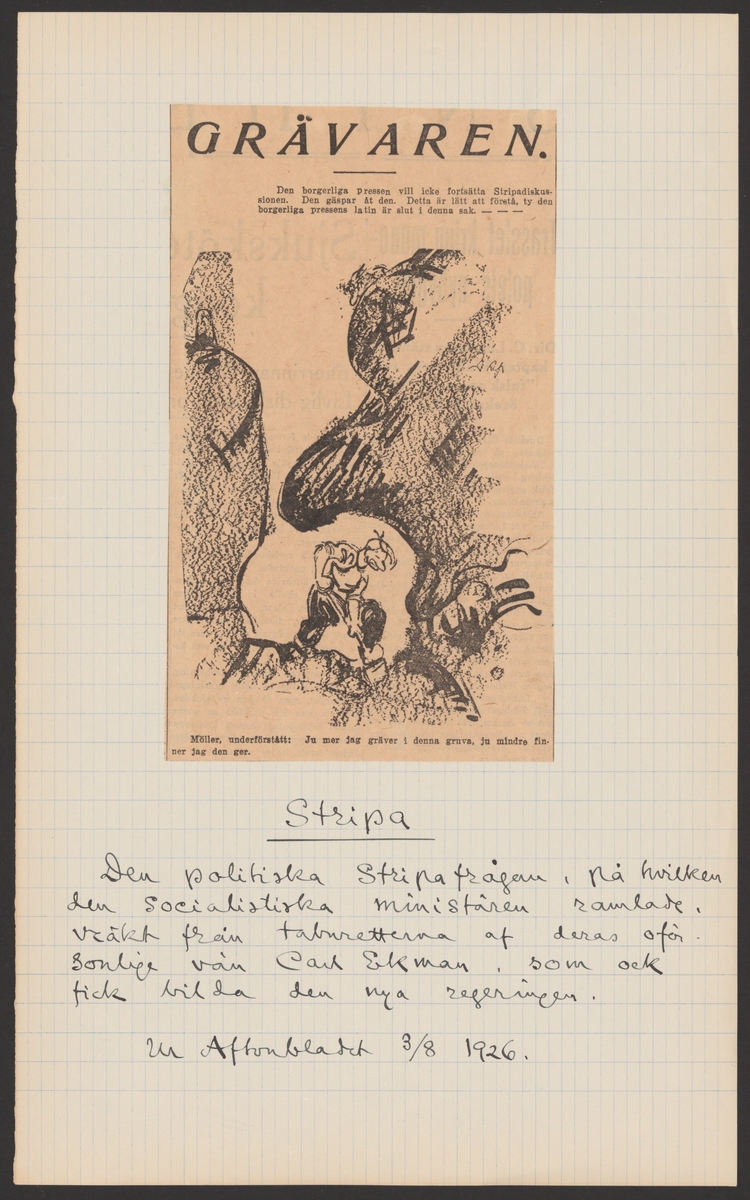 GRÄVAREN.
Den borgerliga pressen vill icke fortsätta Stripadiskus-
sionen. Den gäspar åt den. Detta är lätt att förstå, ty den
borgerliga pressens latin är slut i denna sak. — — —
Möller, underförstått: Ju mer jag gräver i denna gruva, ju mindre fin-
ner jag den ger.
Stripa
Den politiska Stripafrågan, på hvilken
den socialistiska ministären ramlade,
vräkt från taburetterna af deras oför-
sonlige vän Carl Ekman, som ock
fick bilda den nya regeringen.
Ur Aftonbladet 3/8 1926.